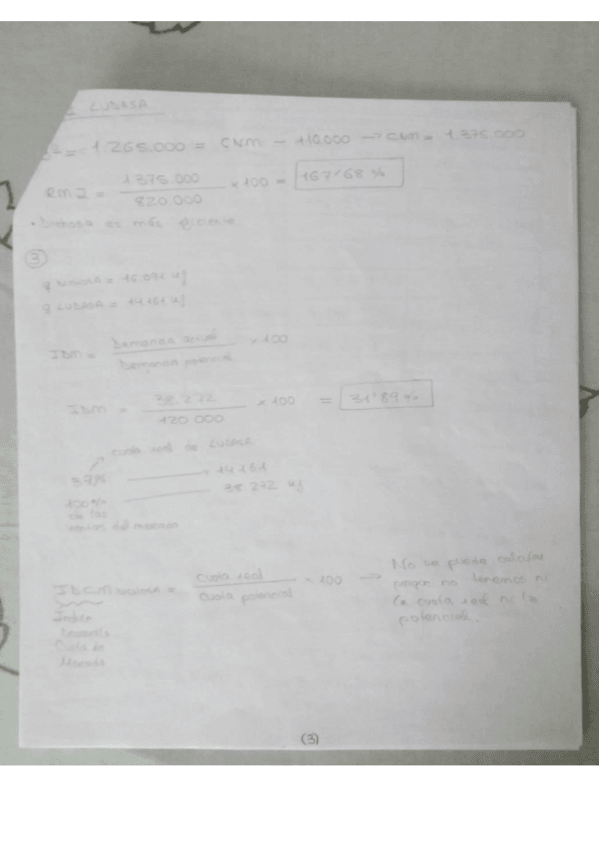 LUDASA
2 = 1.265.000 = CNM - 110.000 → CNM = 1.375.000
RMI = 1375.000 / 820.000 × 100 = 167'68 %
es más eficiente
③
q = 15.091 uf
q LUDASA = 14161 uf
IDM = Demanda actual / Demanda potencial × 100
IDM = 38.272 / 120.000 × 100 = 31'89 %
cuota real de LUDASA
37% 14161
100% 38.272 uf
de las
ventas del mercado
IDCM = cuota real / cuota potencial × 100 → No se puede calcular
porque no tenemos ni
la cuota real ni la
potencial.
Índice
Desarrollo
Cuota de
Mercado
(3)